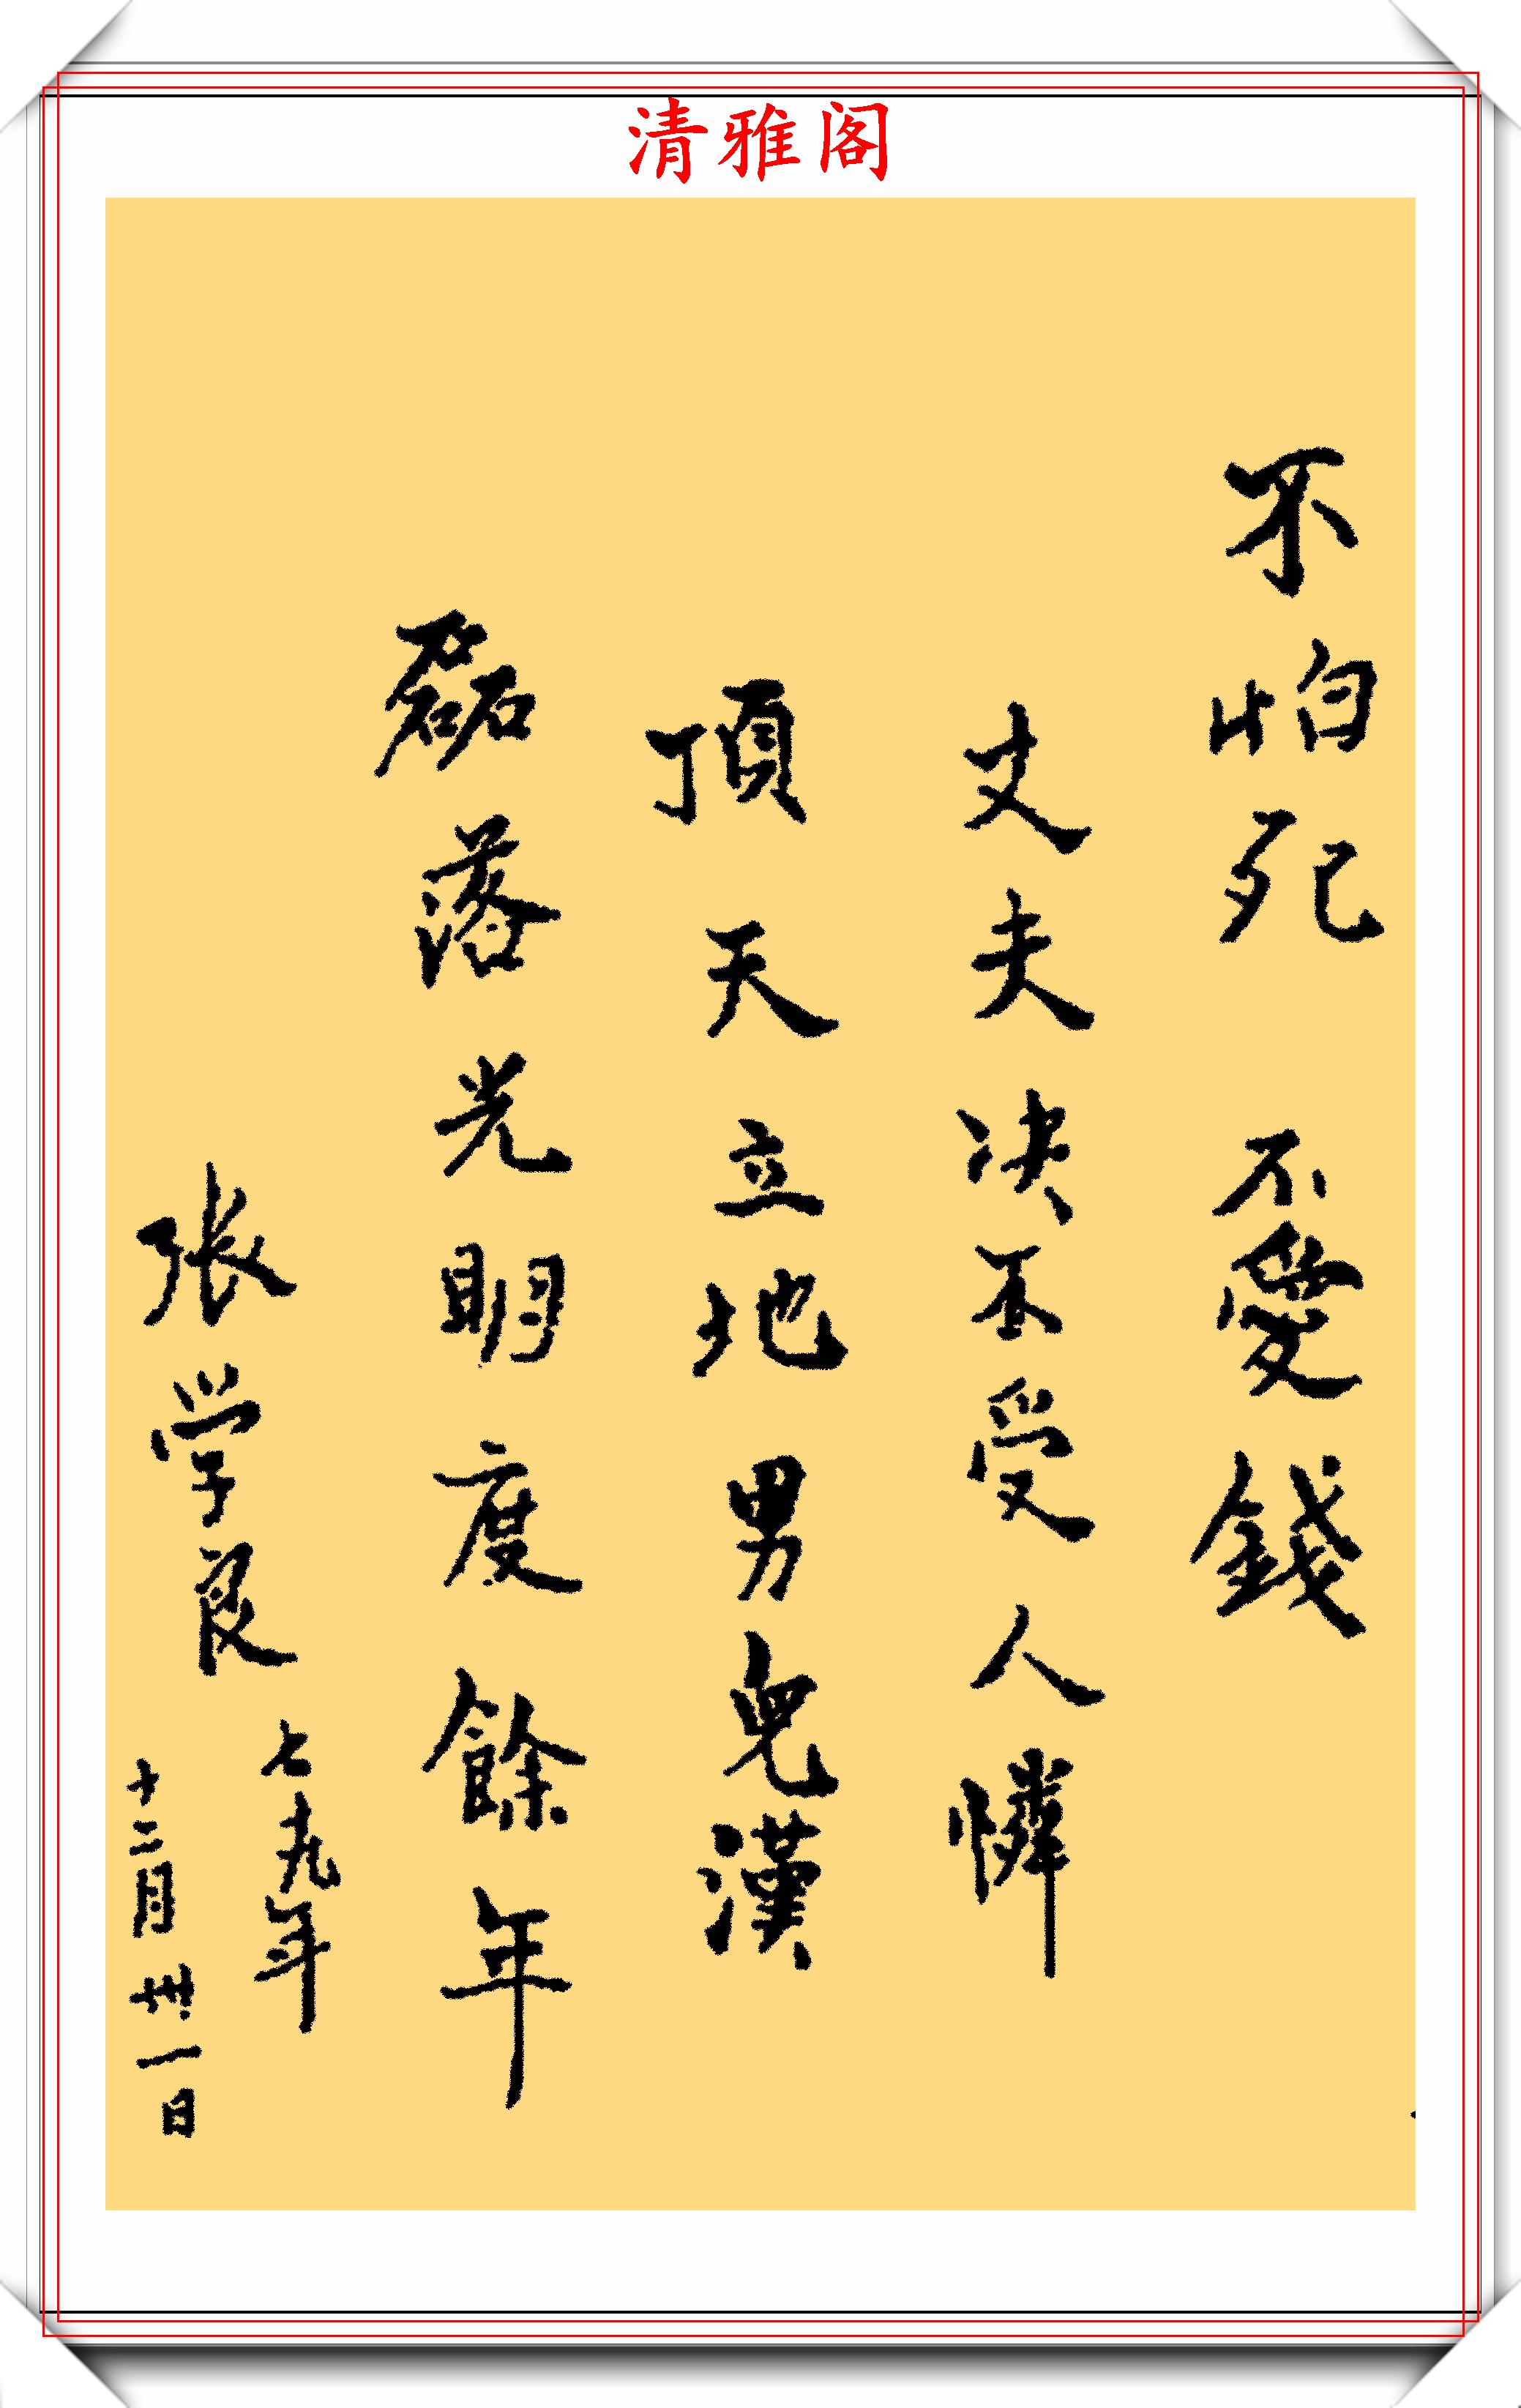 清雅阁
不怕死 不愛錢
丈夫决不受人憐
頂天立地男兒漢
磊落光明度餘年
张学良
七九年
十二月卅一日